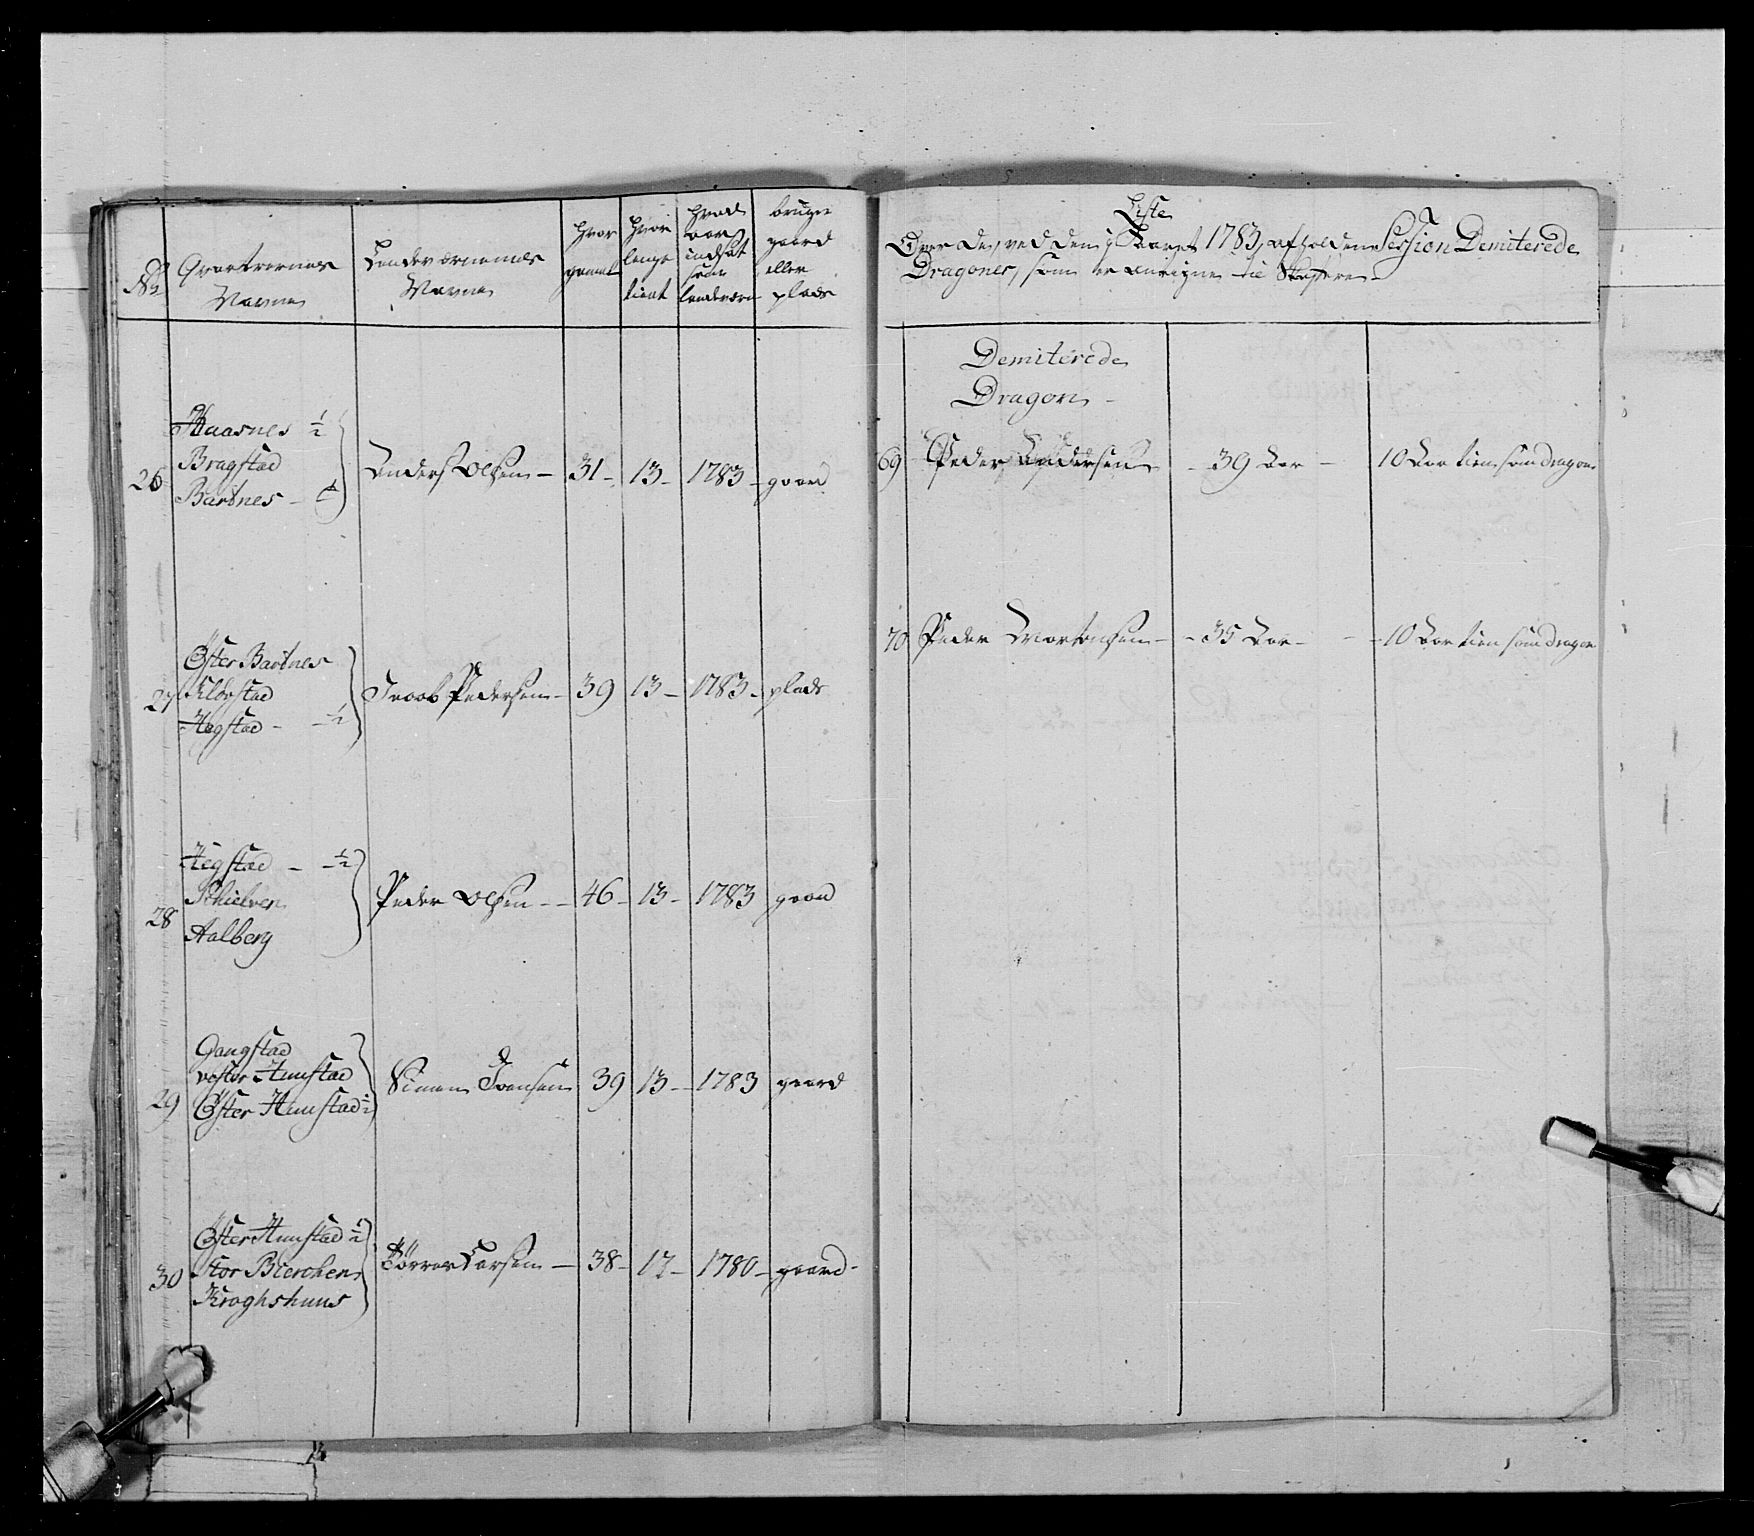 No
Qvarterernes
Navne
Landeværnernes
Navne
hvor
gamel
hvor
lenge
tient
hvad
aar
indsat
som
landeværn
bruger
gaard
eller
plads
26
Haasnes ½
Bragstad
Bartnes - ½
Anders Olsen - 31 - 13 - 1783 - gaard
27
Øster Bartnes
Kldestad
Hegstad - - ½
Jacob Pedersen - 39 13 - 1783 - plads
28
Hegstad - - ½
Schielven
Aalberg
Peder Olsen - - 46 - 13 - 1783 gaard
29
Gangstad
vester Hunstad
Øster Hunstad ½
Simon Ivensen 39 13 - 1783 gaard
30
Øster Hunstad ½
Stor Bierchen
Kroghshuus
Tørres Larsen - 38 - 12 - 1780 - gaard -
Liste
Over de, ved den i Aaret 1783, afholdene Session Demiterede
Dragoner, som er til
Demiterede
Dragon -
69 Peder Andersen - 39 Aar - 10 Aar tient som dragon
70 Peder Mortensen - - 35 Aar - - 10 Aar tient som dragon